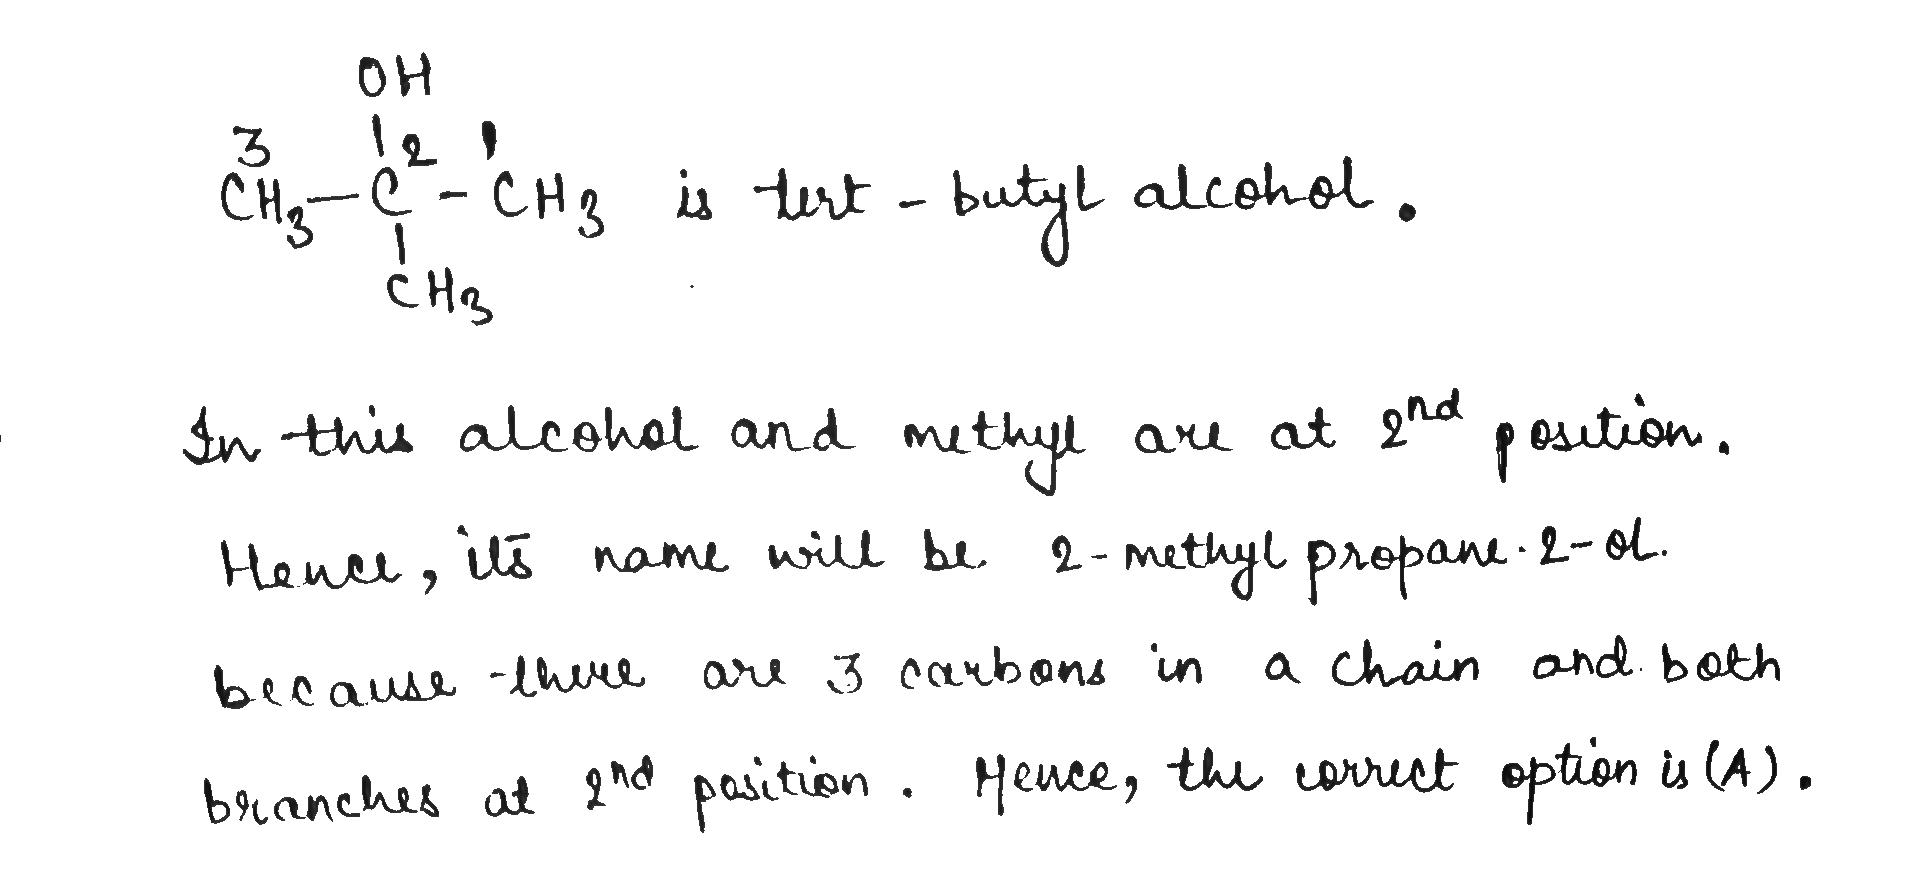 OH
3 | 2 1
CH3-C-CH3 is tert-butyl alcohol.
|
CH3
In this alcohol and methyl are at 2nd position.
Hence, its name will be 2-methyl propane-2-ol.
because there are 3 carbons in a chain and both
branches at 2nd position. Hence, the correct option is (A).